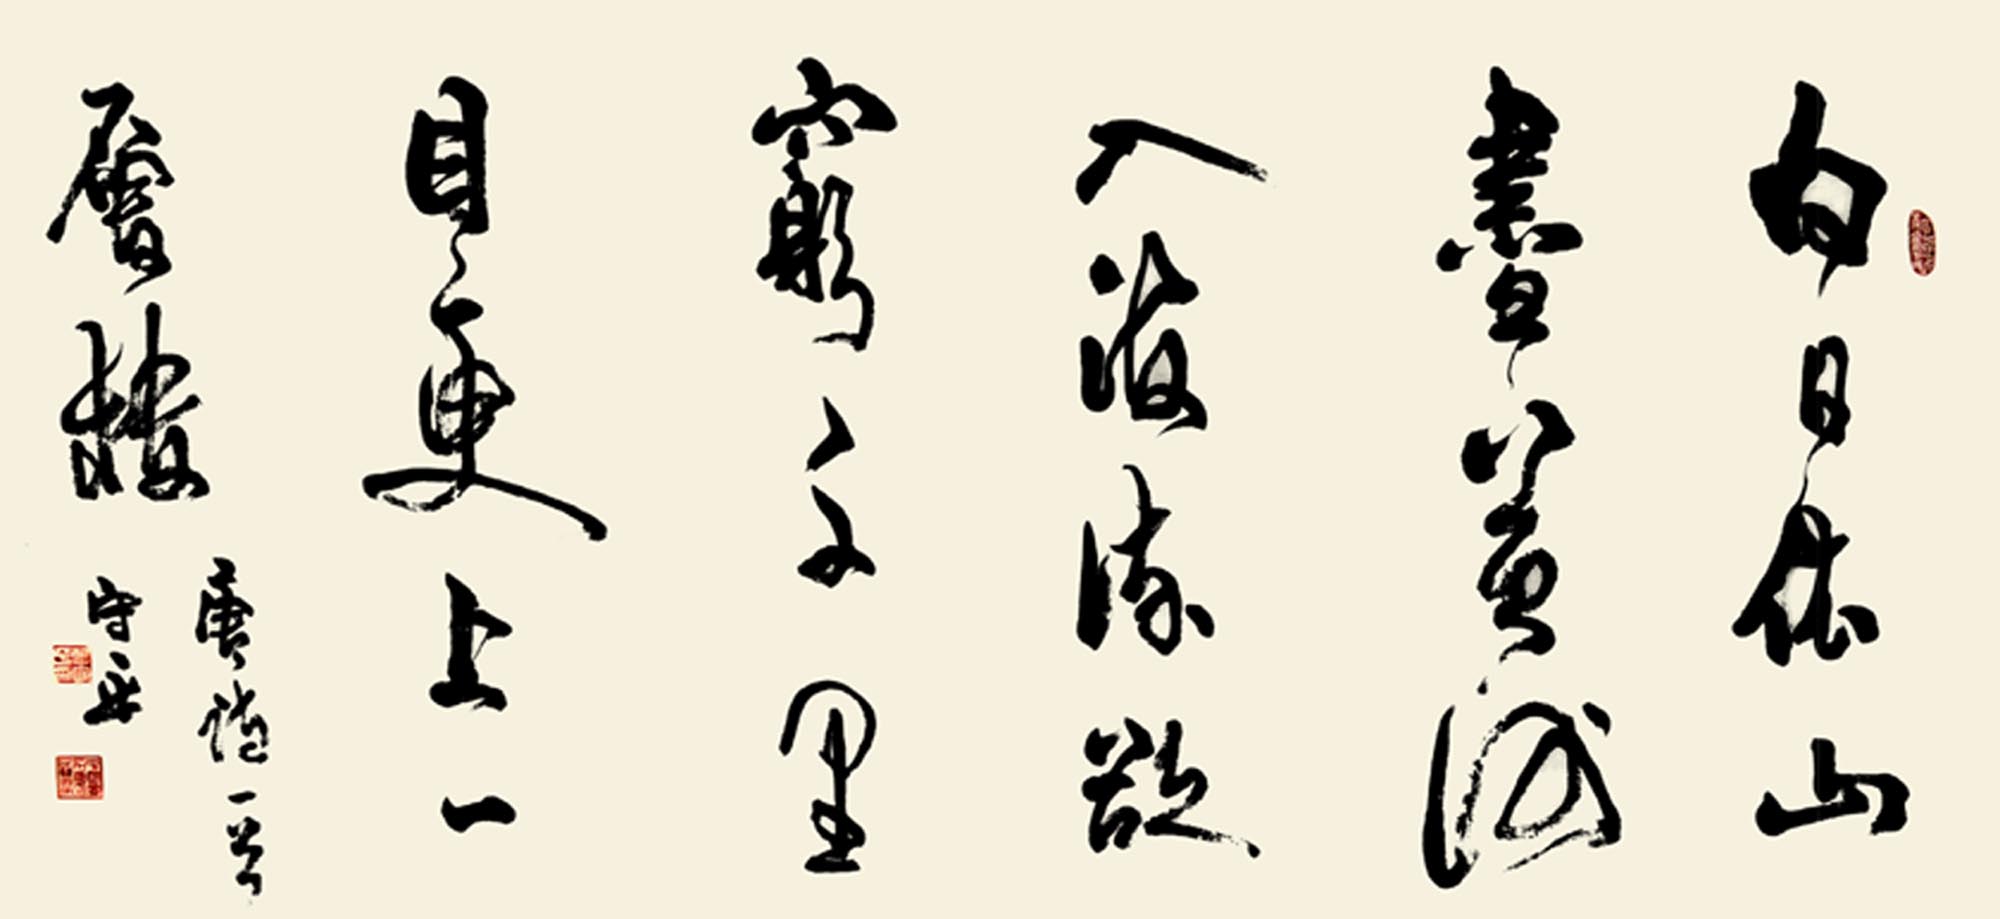 白日依山
盡黃河
入海流欲
窮千里
目更上一
層樓
唐詩一首
守安